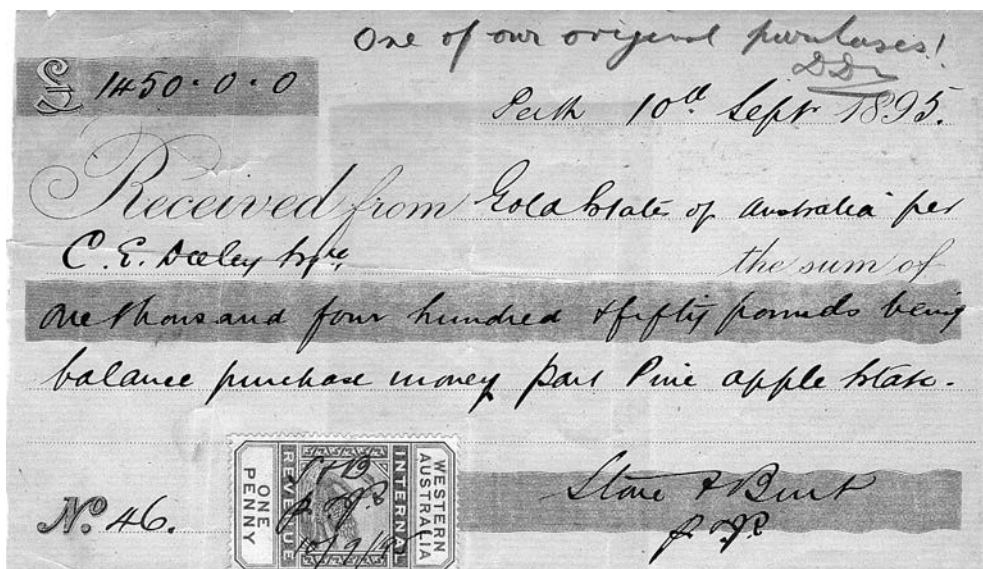 One of our original purchases!
DD
£ 1450·0·0
Perth 10th Sept 1895.
Received from Gold Estates of Australia per
C. E. Deeley Esqre, the sum of
one thousand four hundred & fifty pounds being
balance purchase money part Pine apple Estate.
WESTERN AUSTRALIA
INTERNAL REVENUE
ONE PENNY
S & B
10/9/95
Stone & Burt
No 46.